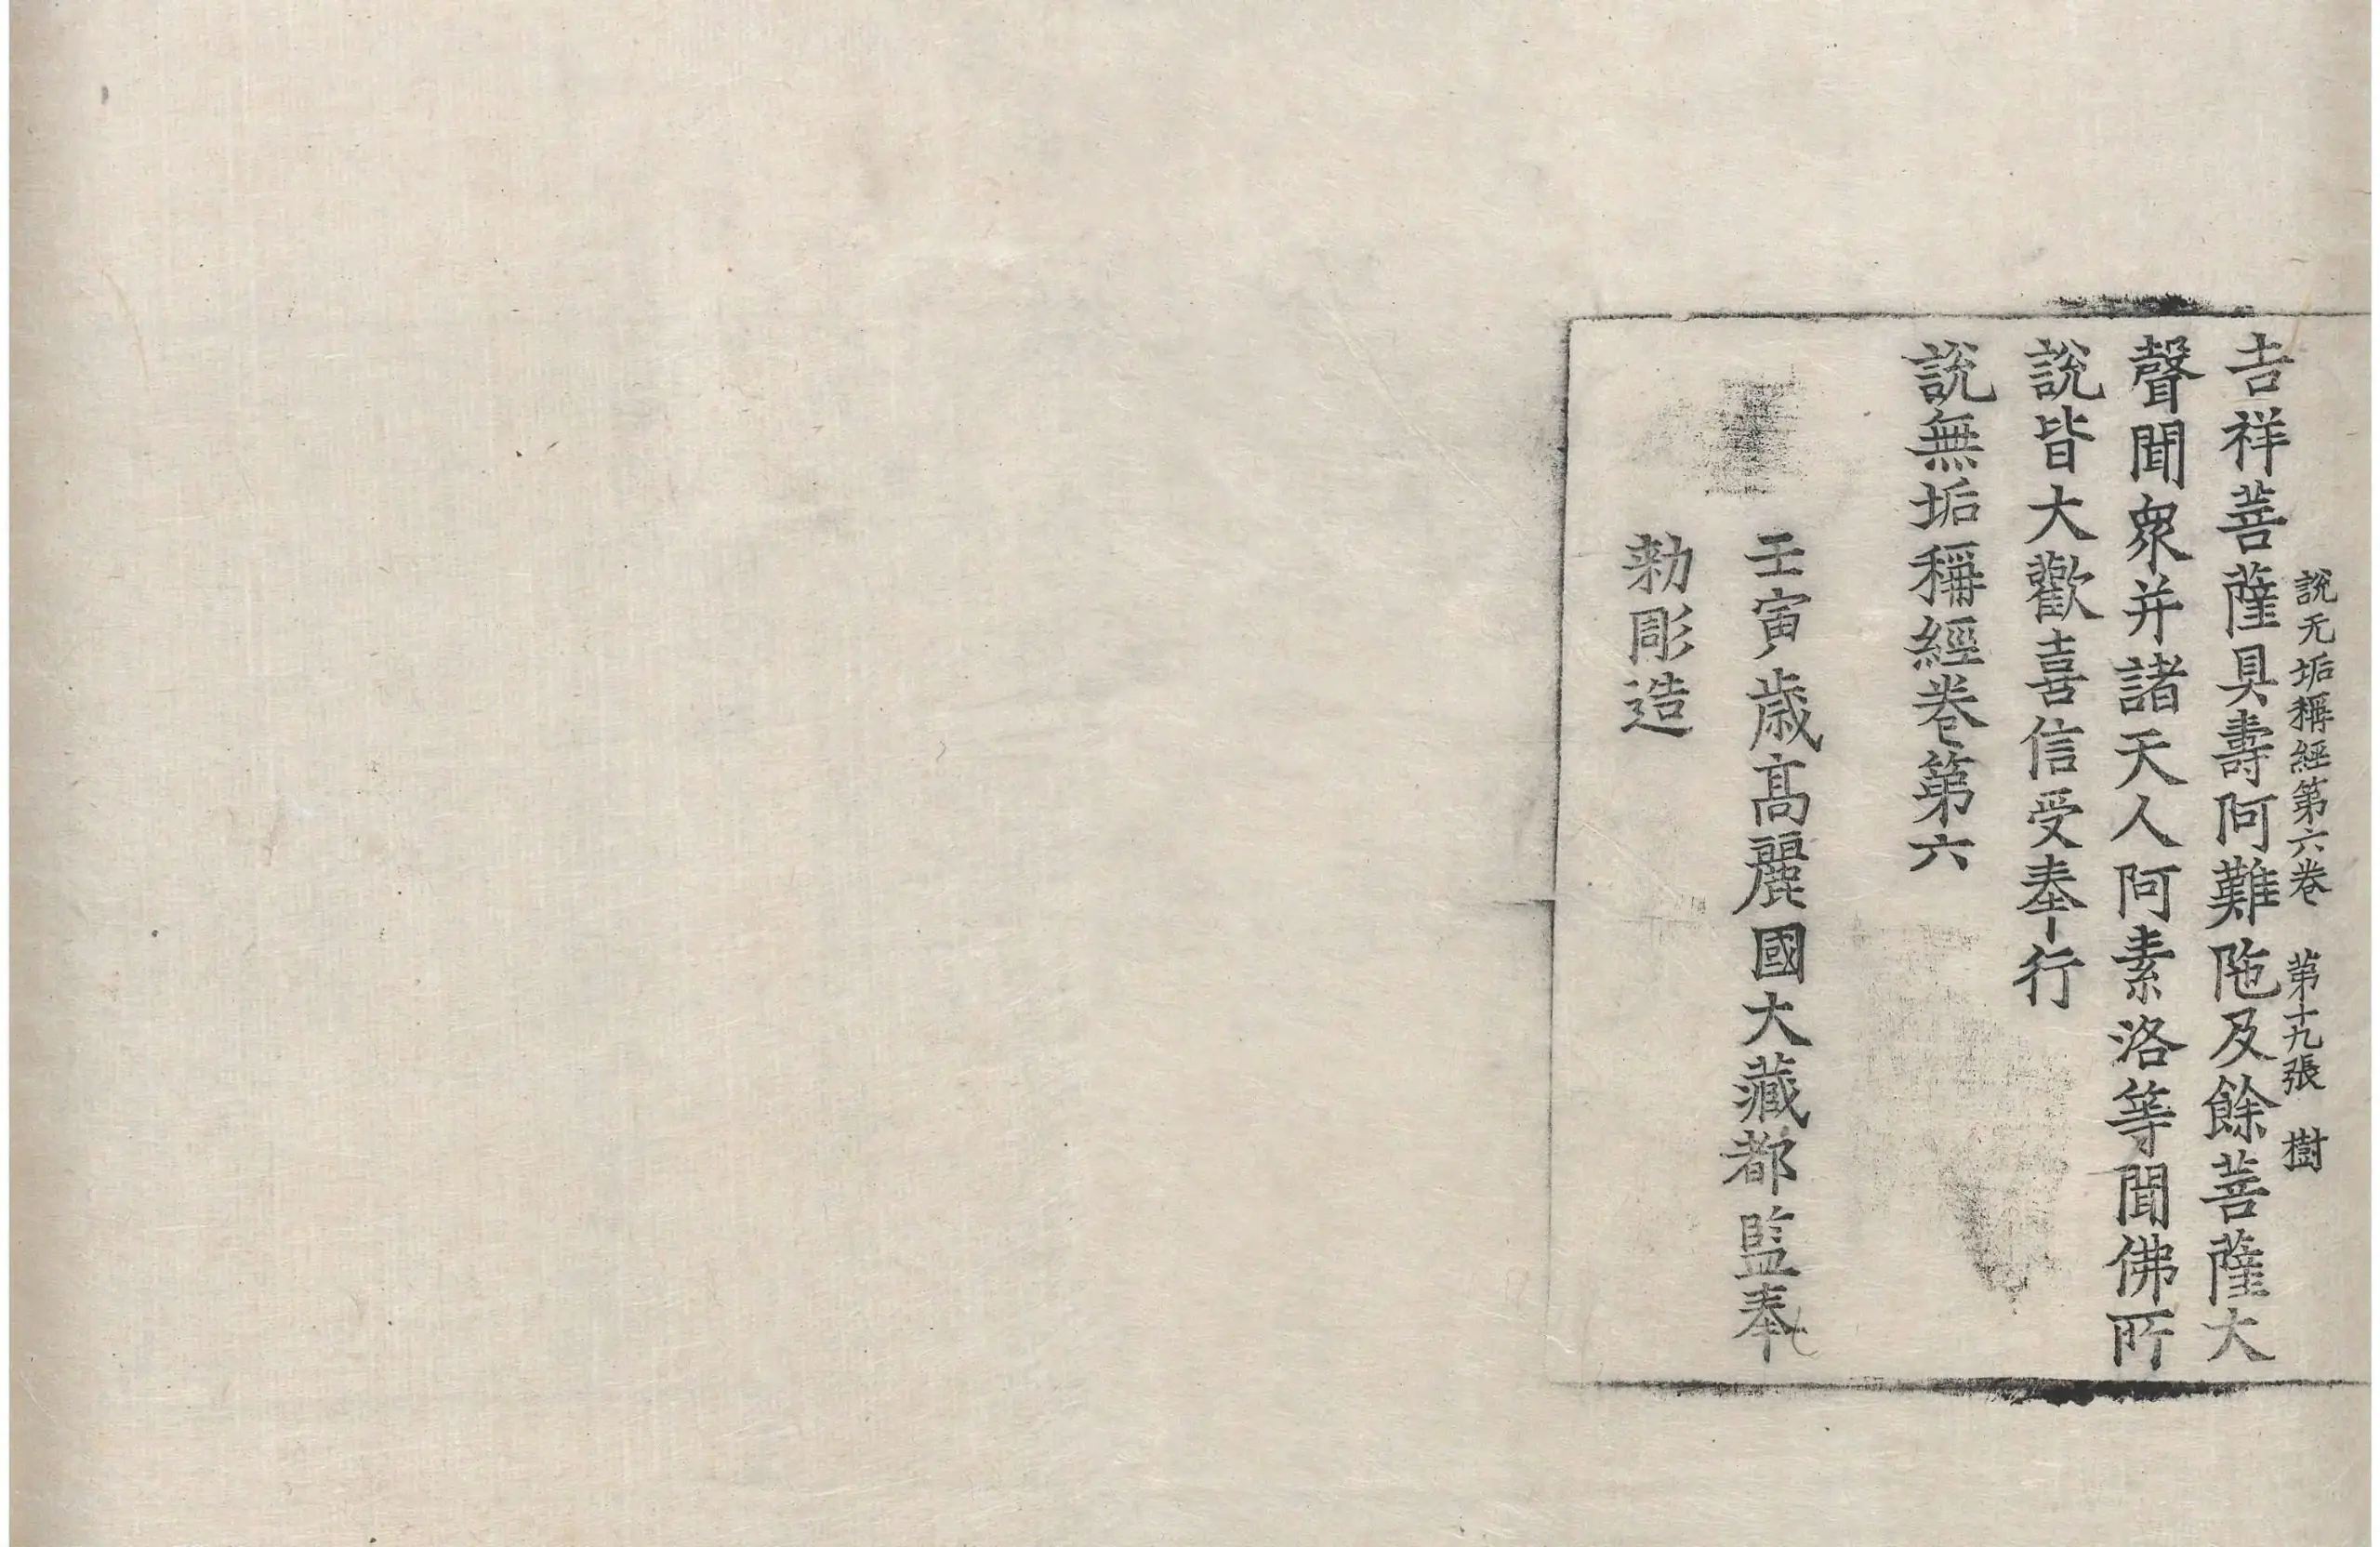 說无垢稱經第六卷 第十九張 樹
吉祥菩薩具壽阿難陁及餘菩薩大
聲聞衆并諸天人阿素洛等聞佛所
說皆大歡喜信受奉行
說無垢稱經卷第六
壬寅歲高麗國大藏都監奉
勅彫造